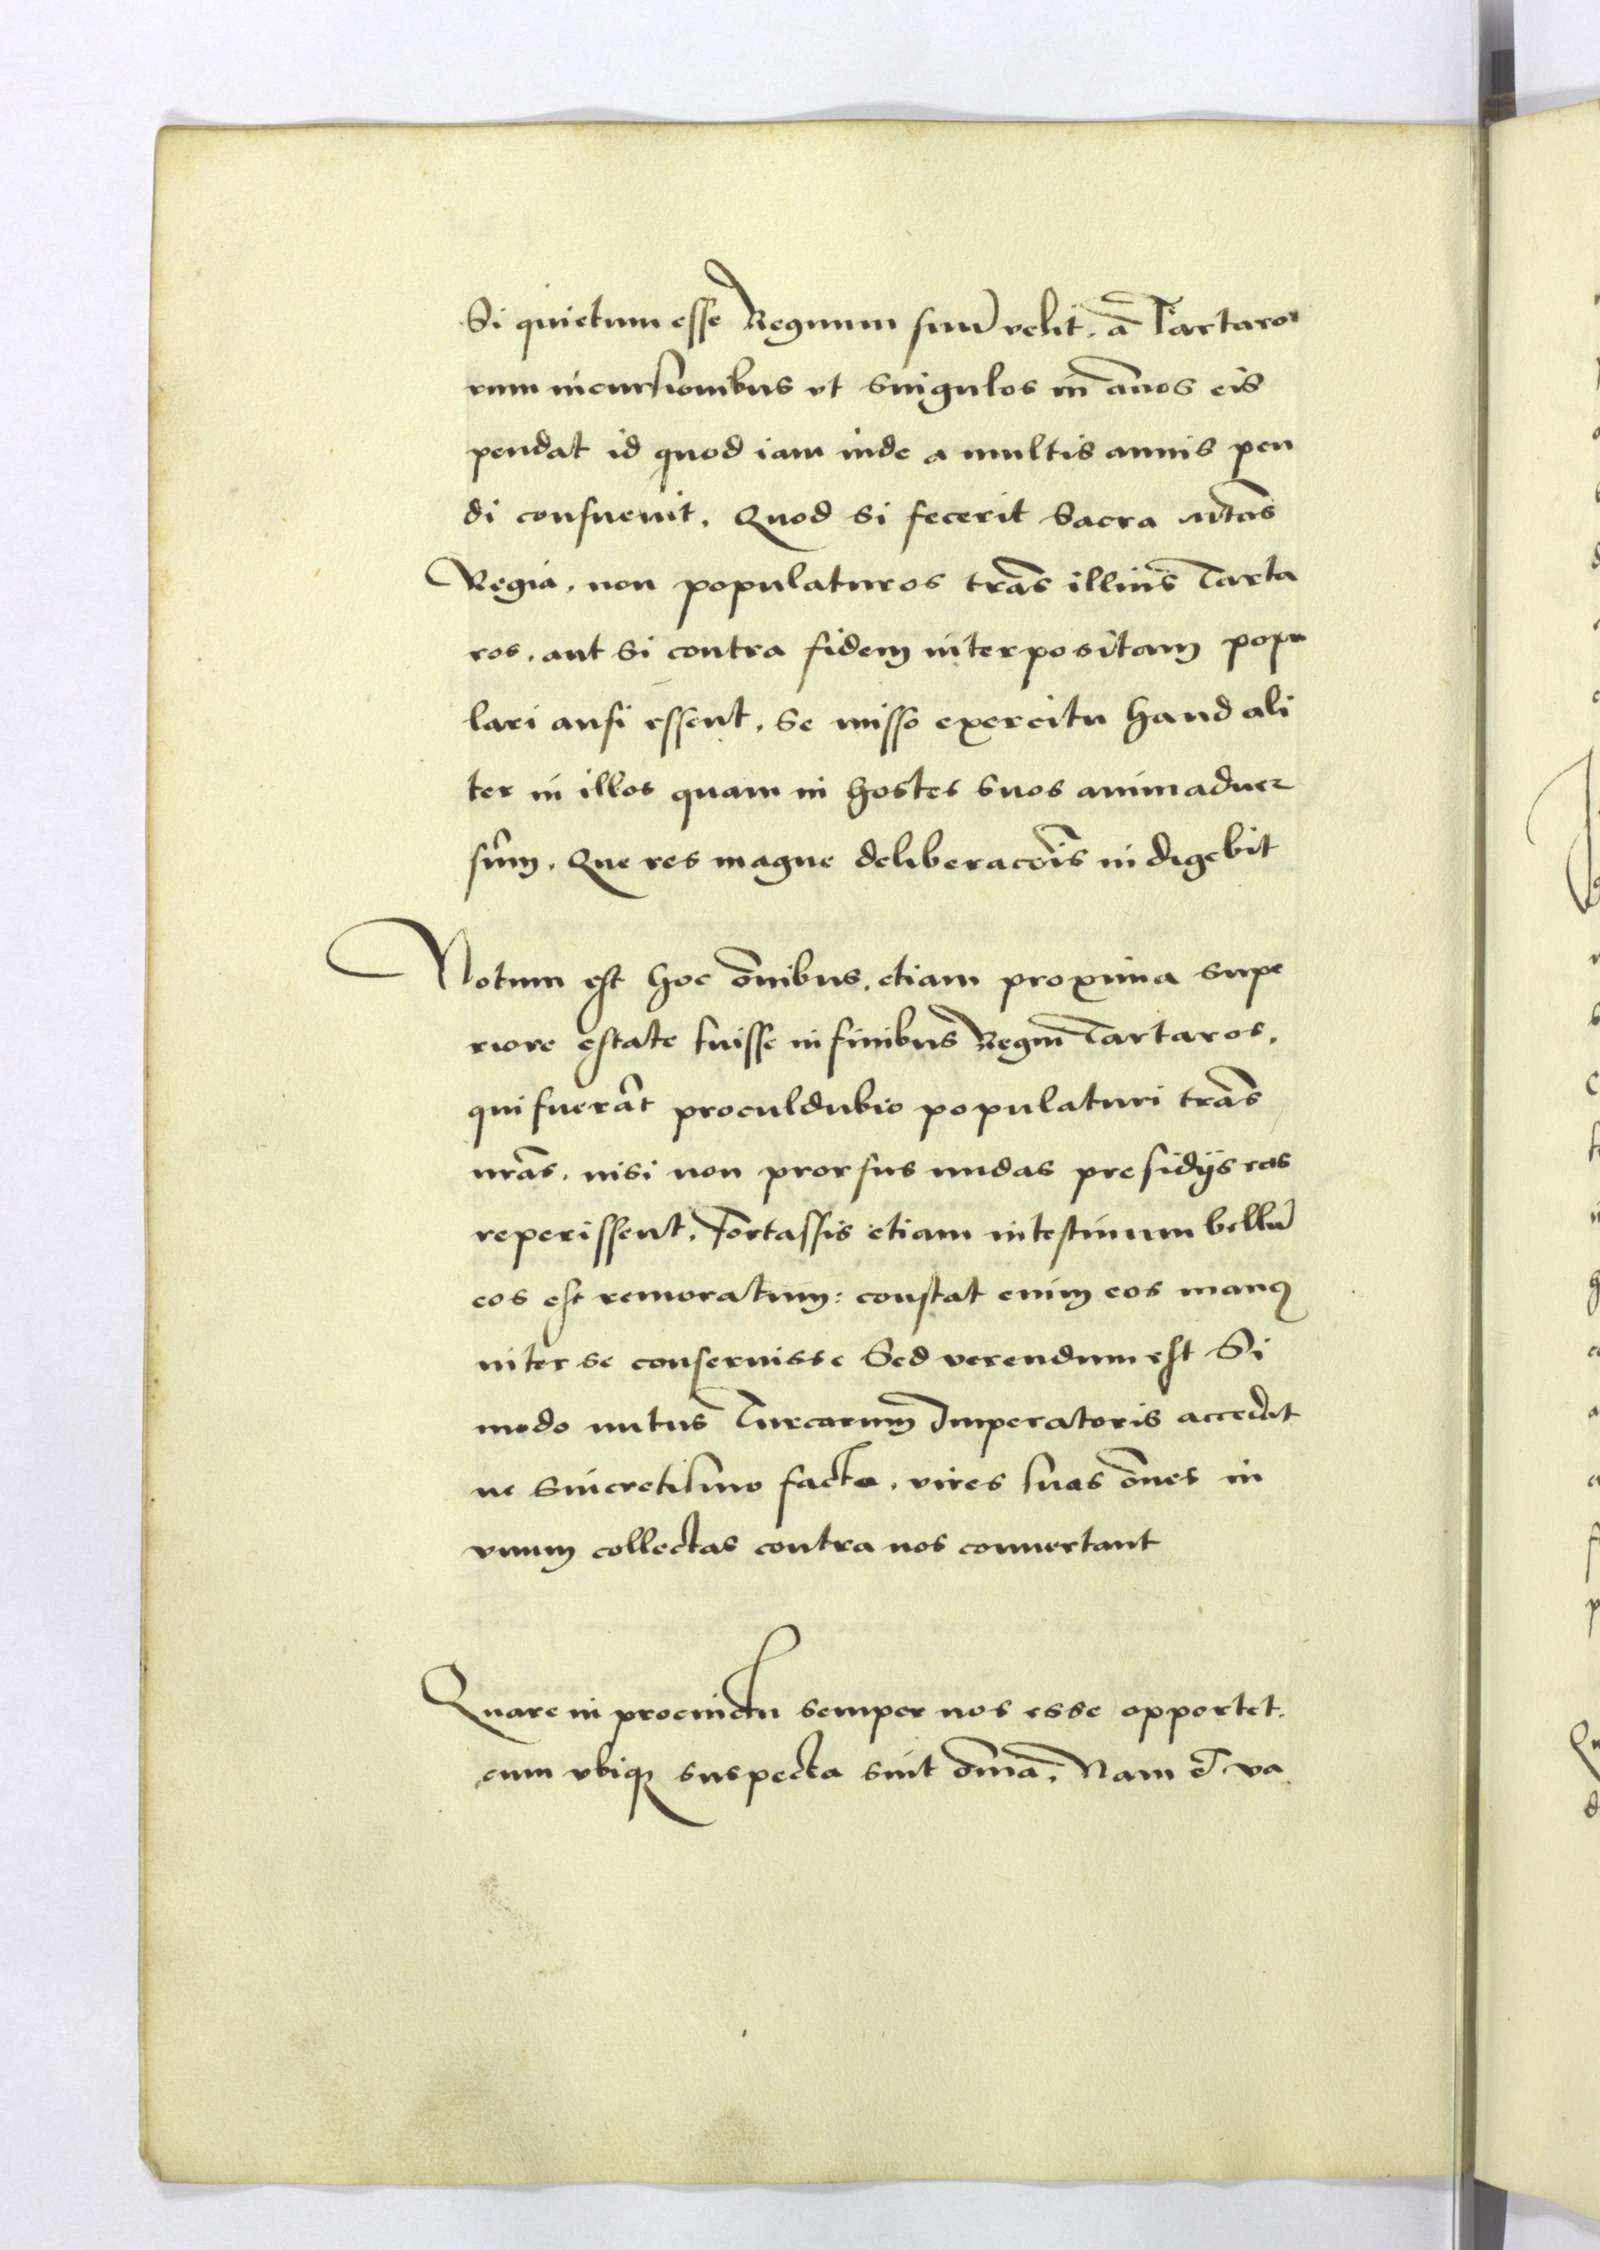 Si quietum esse Regnum suũ velit, a Tartaro
rum incursionibus vt singulos in ãnos eis
pendat id quod iam inde a multis annis pen
di consueuit. Quod si fecerit Sacra Mtas
Regia, non populaturos trãs illius Tarta
ros, aut si contra fidem interpositam popu
lari ausi essent, se misso exercitu haud ali
ter in illos quam in hostes suos animaduer
sũm. Que res magne deliberacõis indigebit
Notum est hoc õnibus, etiam proxima supe
riore estate fuisse in finibus Regni Tartaros,
qui fuerãt proculdubio populaturi trãs
nrãs, nisi non prorsus nudas presidijs eas
reperissent, Fortassis etiam intestinum bellũ
eos est remoratum: constat enim eos manꝰ
inter se conseruisse Sed verendum est Si
modo nutus Turcarum Imperatoris accedat
ne Sincretismo facto, vires suas õnes in
vnum collectas contra nos conuertant
Quare in procinctu semper nos esse opportet,
cum vbiqꝫ suspecta sint õmia, Nam et va